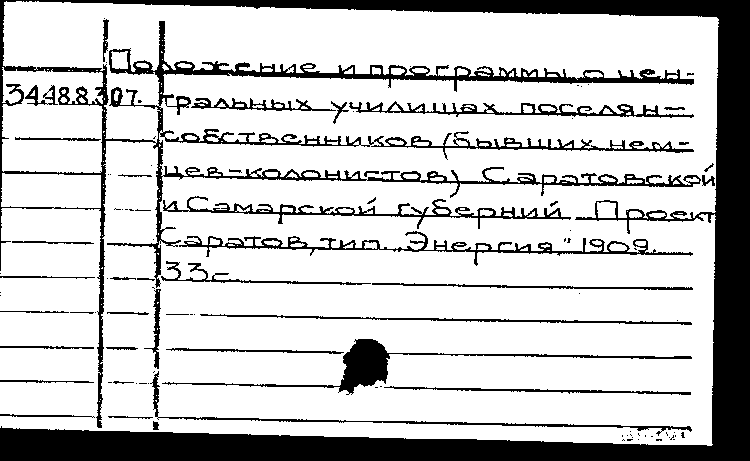 Положение и программы о цен-
34.48.8.307. тральных училищах поселян-
собственников (бывших нем-
цев-колонистов) Саратовской
и Самарской губерний Проект
Саратов, тип. „Энергия" 1909.
33с.